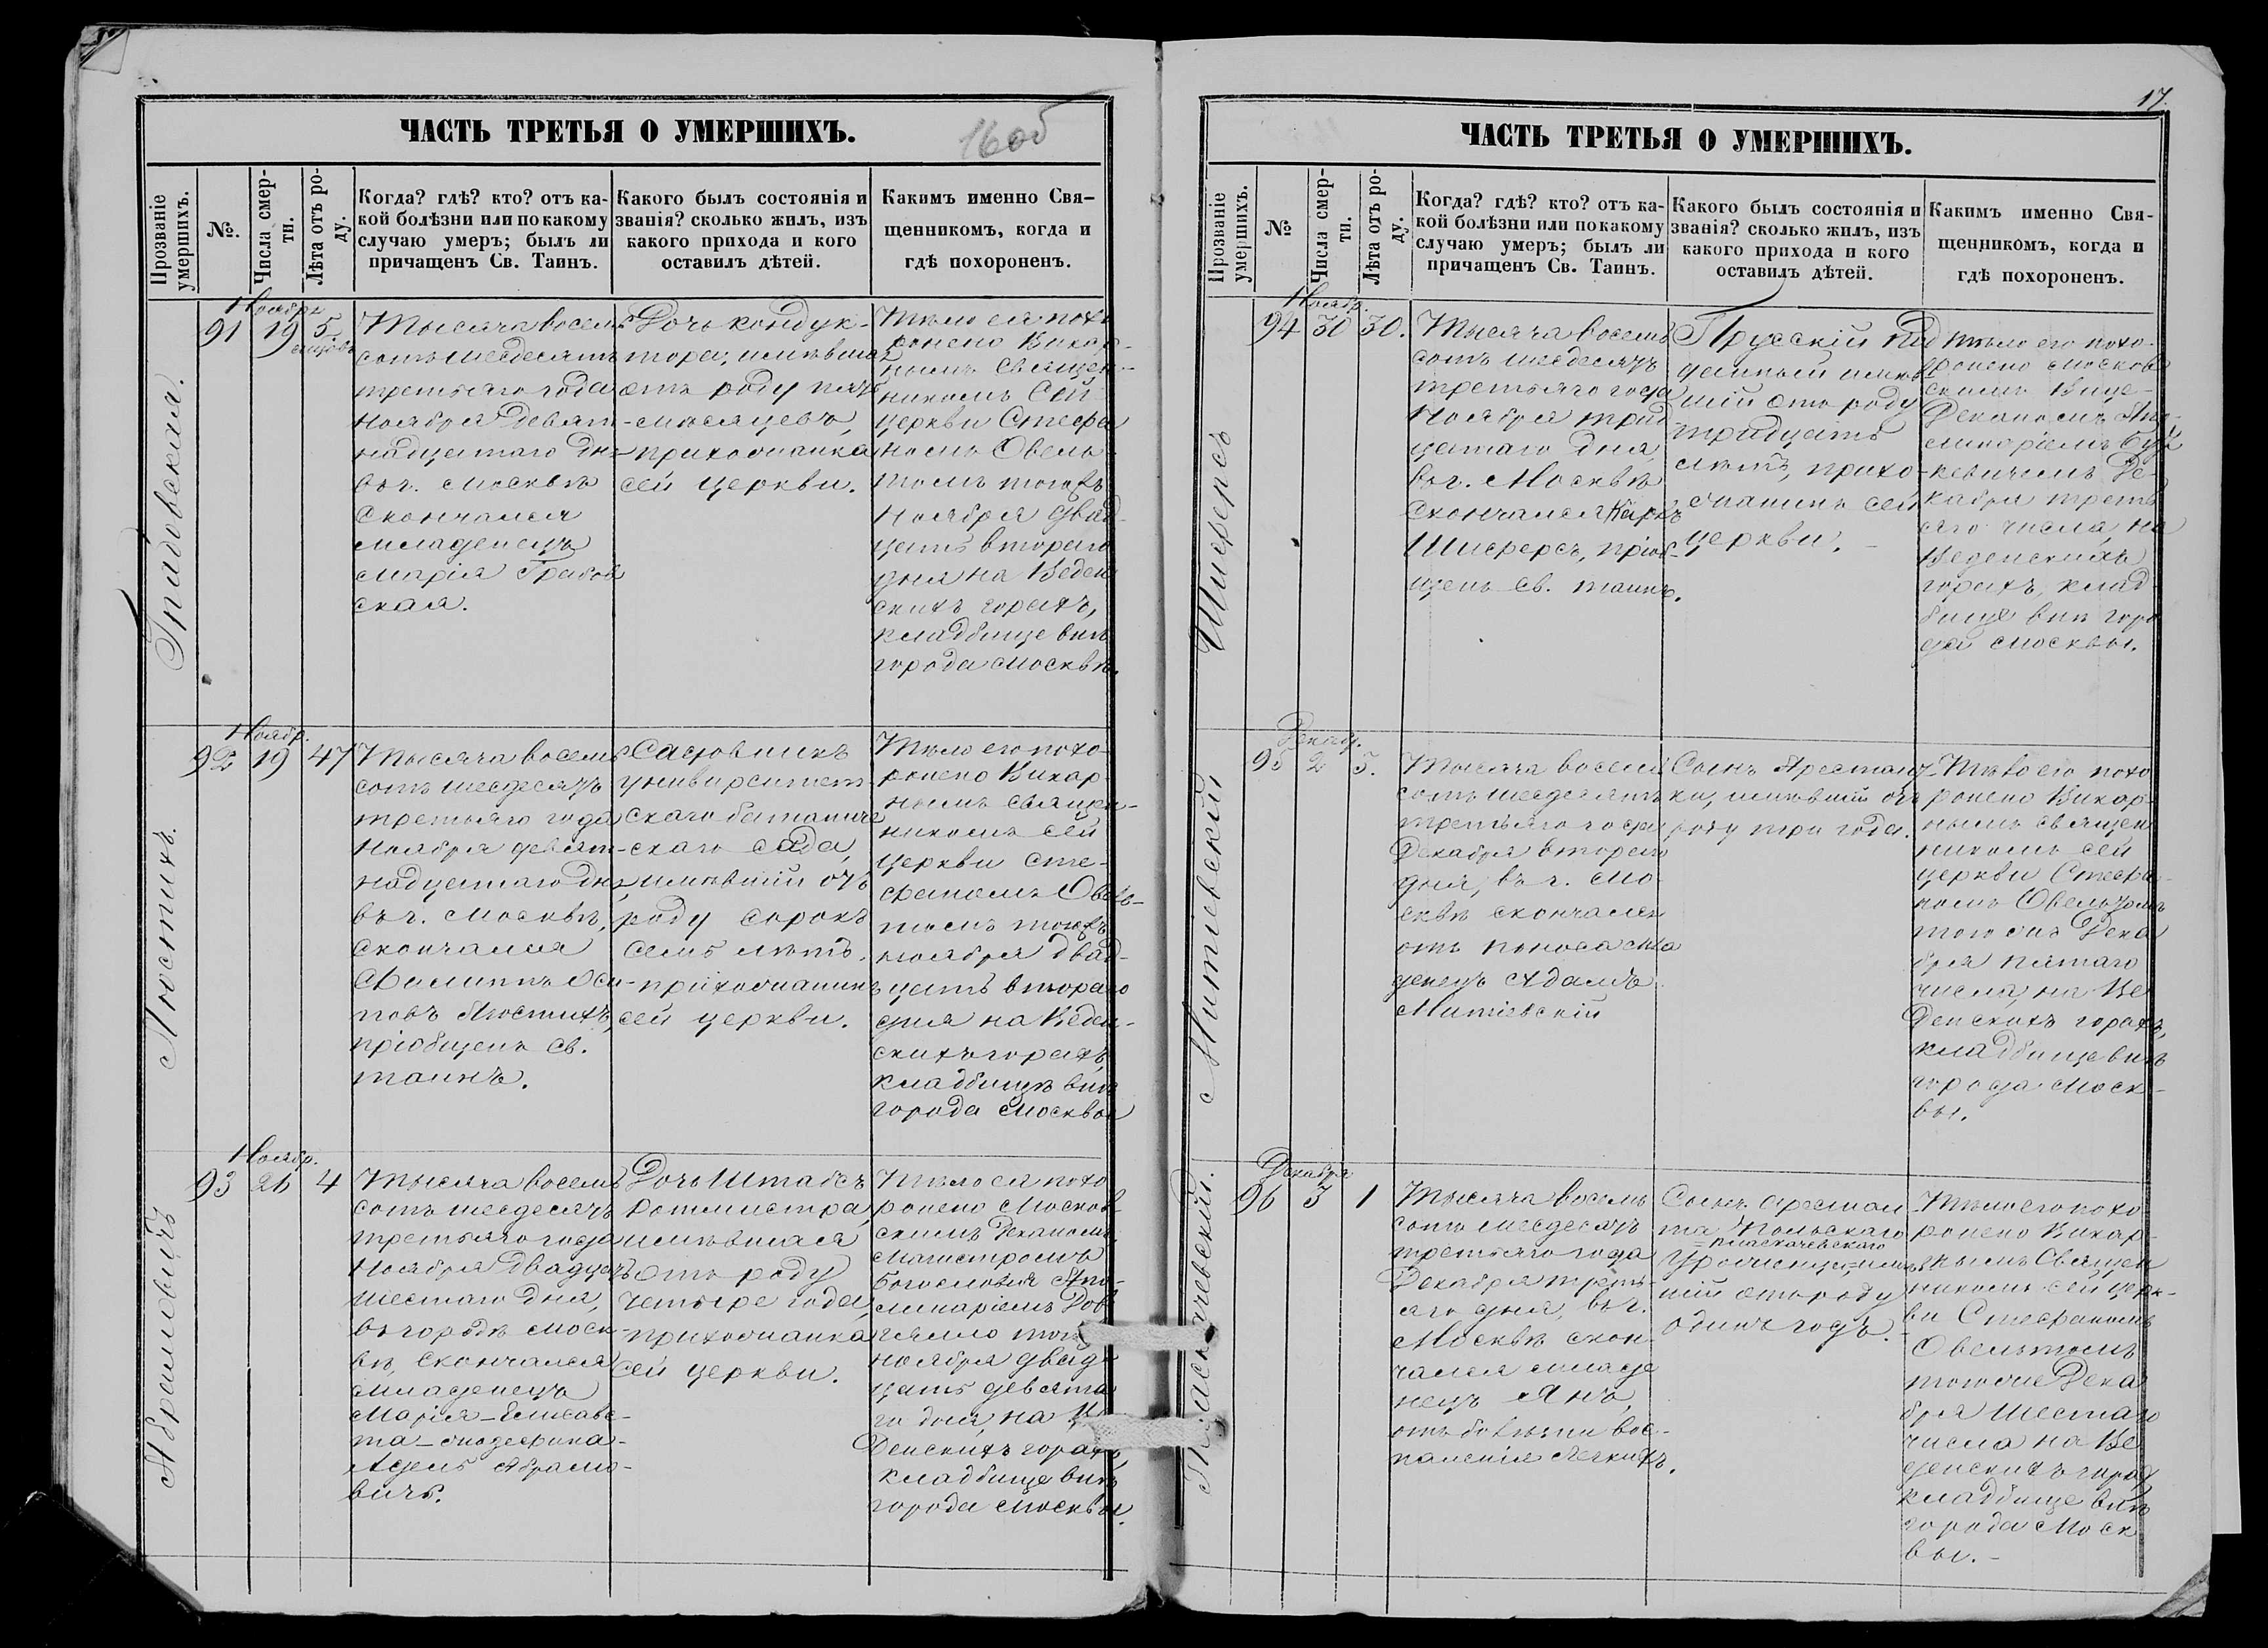 ЧАСТЬ ТРЕТЬЯ О УМЕРШИХЪ.
16об
Прозваніе умершихъ.
№.
Числа смер-
ти.
Лѣта отъ ро-
ду.
Когда? гдѣ? кто? отъ ка-
кой болѣзни или по какому
случаю умеръ; былъ ли
причащенъ Св. Таинъ.
Какого былъ состоянія и
званія? сколько жилъ, изъ
какого прихода и кого
оставилъ дѣтей.
Какимъ именно Свя-
щенникомъ, когда и
гдѣ похороненъ.
Ноября
91 19 5
мѣсяцовъ
Тысяча восемь
сотъ шесдесятъ
третьяго года
Ноября девят-
надцатаго дня
въ г. Москвѣ
скончался
младенецъ
Марія
ская.
Дочь кондук-
тора, имѣвшая
отъ роду пять
мѣсяцевъ,
прихожанка
сей церкви.
Тѣло ея похо
ронено Викар-
нымъ Священ-
никомъ Сей
церкви Стефа
номъ Овель
томъ тогожъ
Ноября двад-
цать втораго
дня на Веден
скихъ горахъ,
кладбище внѣ
города Москвѣ.
Ноябр.
92 19 47
Люстихъ.
Тысяча восемь
сотъ шесдесятъ
третьяго года
Ноября девят-
надцатаго дня
въ г. Москвѣ,
скончался
Филиппъ Оси-
повъ Люстихъ,
пріобщенъ св.
таинъ.
Садовникъ
университет
скаго ботаниче
скаго сада,
имѣвшій отъ
роду сорокъ
семь лѣтъ.
прихожанинъ
сей церкви.
Тѣло его похо-
ронено Викар
нымъ священ-
никомъ сей
церкви Сте-
фаномъ Овель-
томъ тогожъ
ноября двад-
цать втораго
дня на Веден-
скихъ горахъ
кладбищѣ внѣ
города Москвы
Ноябр.
93 26 4
Абрамовичъ
Тысяча восемь
сотъ шесдесятъ
третьяго года
Ноября двадцать
шестаго дня,
въ городѣ Моск-
вѣ, скончался
младенецъ
Марія-Елисаве-
та-Жозефина-
Адель Абрамо-
вичъ.
Дочь Штабсъ
Ротмистра,
имѣвшая
отъ роду
четыре года,
прихожанка
сей церкви.
Тѣло ея похо
ронено Москов
скимъ Деканомъ,
Магистромъ
Богословія Апо-
линаріемъ Дов
гялло
ноября двад-
цать девята
го дня, на Ве
денскихъ горахъ,
кладбище внѣ
города Москвы.
17.
ЧАСТЬ ТРЕТЬЯ О УМЕРШИХЪ.
Прозваніе умершихъ.
№
Числа смер-
ти.
Лѣта отъ ро-
ду.
Когда? гдѣ? кто? отъ ка-
кой болѣзни или по какому
случаю умеръ; былъ ли
причащенъ Св. Таинъ.
Какого былъ состоянія и
званія? сколько жилъ, изъ
какого прихода и кого
оставилъ дѣтей.
Какимъ именно Свя-
щенникомъ, когда и
гдѣ похороненъ.
Ноябр.
94 30 30.
Шиферсъ
Тысяча восемь
сотъ шесдесятъ
третьяго года
Ноября трид
цатаго дня
въ г. Москвѣ
скончался Карлъ
Шиферсъ, пріоб-
щенъ св. таинъ.
Прусскій под
данный имѣв
шій отъ роду
тридцать
лѣтъ, прихо-
жанинъ сей
церкви.
Тѣло его похо-
ронено Москов
скимъ Вице-
Деканомъ Апо-
линаріемъ
кевичемъ Де-
кабря треть
яго числа, на
Веденскихъ
горахъ, клад
бище внѣ горо
да Москвы.
Декаб.
95 2 3.
Митіевскій
Тысяча восемь
сотъ шесдесятъ
третьяго года
Декабря втораго
дня, въ г. Мо-
сквѣ скончался
отъ поноса мла
денецъ Адамъ
Митіевскій
Сынъ Арестант
ки, имѣвшій отъ
роду три года.
Тѣло его похо
ронено Викар-
нымъ священ
никомъ сей
церкви Стефа
номъ Овельтомъ
тогоже Дека
бря пятаго
числа, на Ве
денскихъ горахъ,
кладбище внѣ
города Моск-
вы.
Декабря
96 3 1
Тысяча восемь
сотъ шесдесятъ
третьяго года
Декабря треть-
яго дня, въ г.
Москвѣ скон-
чался младе
нецъ Янъ,
отъ болѣзни вос-
паленія легкихъ.
Сынъ арестан
та Польскаго
шій отъ роду
одинъ годъ.
Тѣло его похо
ронено Викар-
нымъ Священ
никомъ сей церк-
ви Стефаномъ
Овельтомъ
тогоже Дека
бря шестаго
числа на Ве
денскихъ горах
кладбище внѣ
города Моск
вы.-